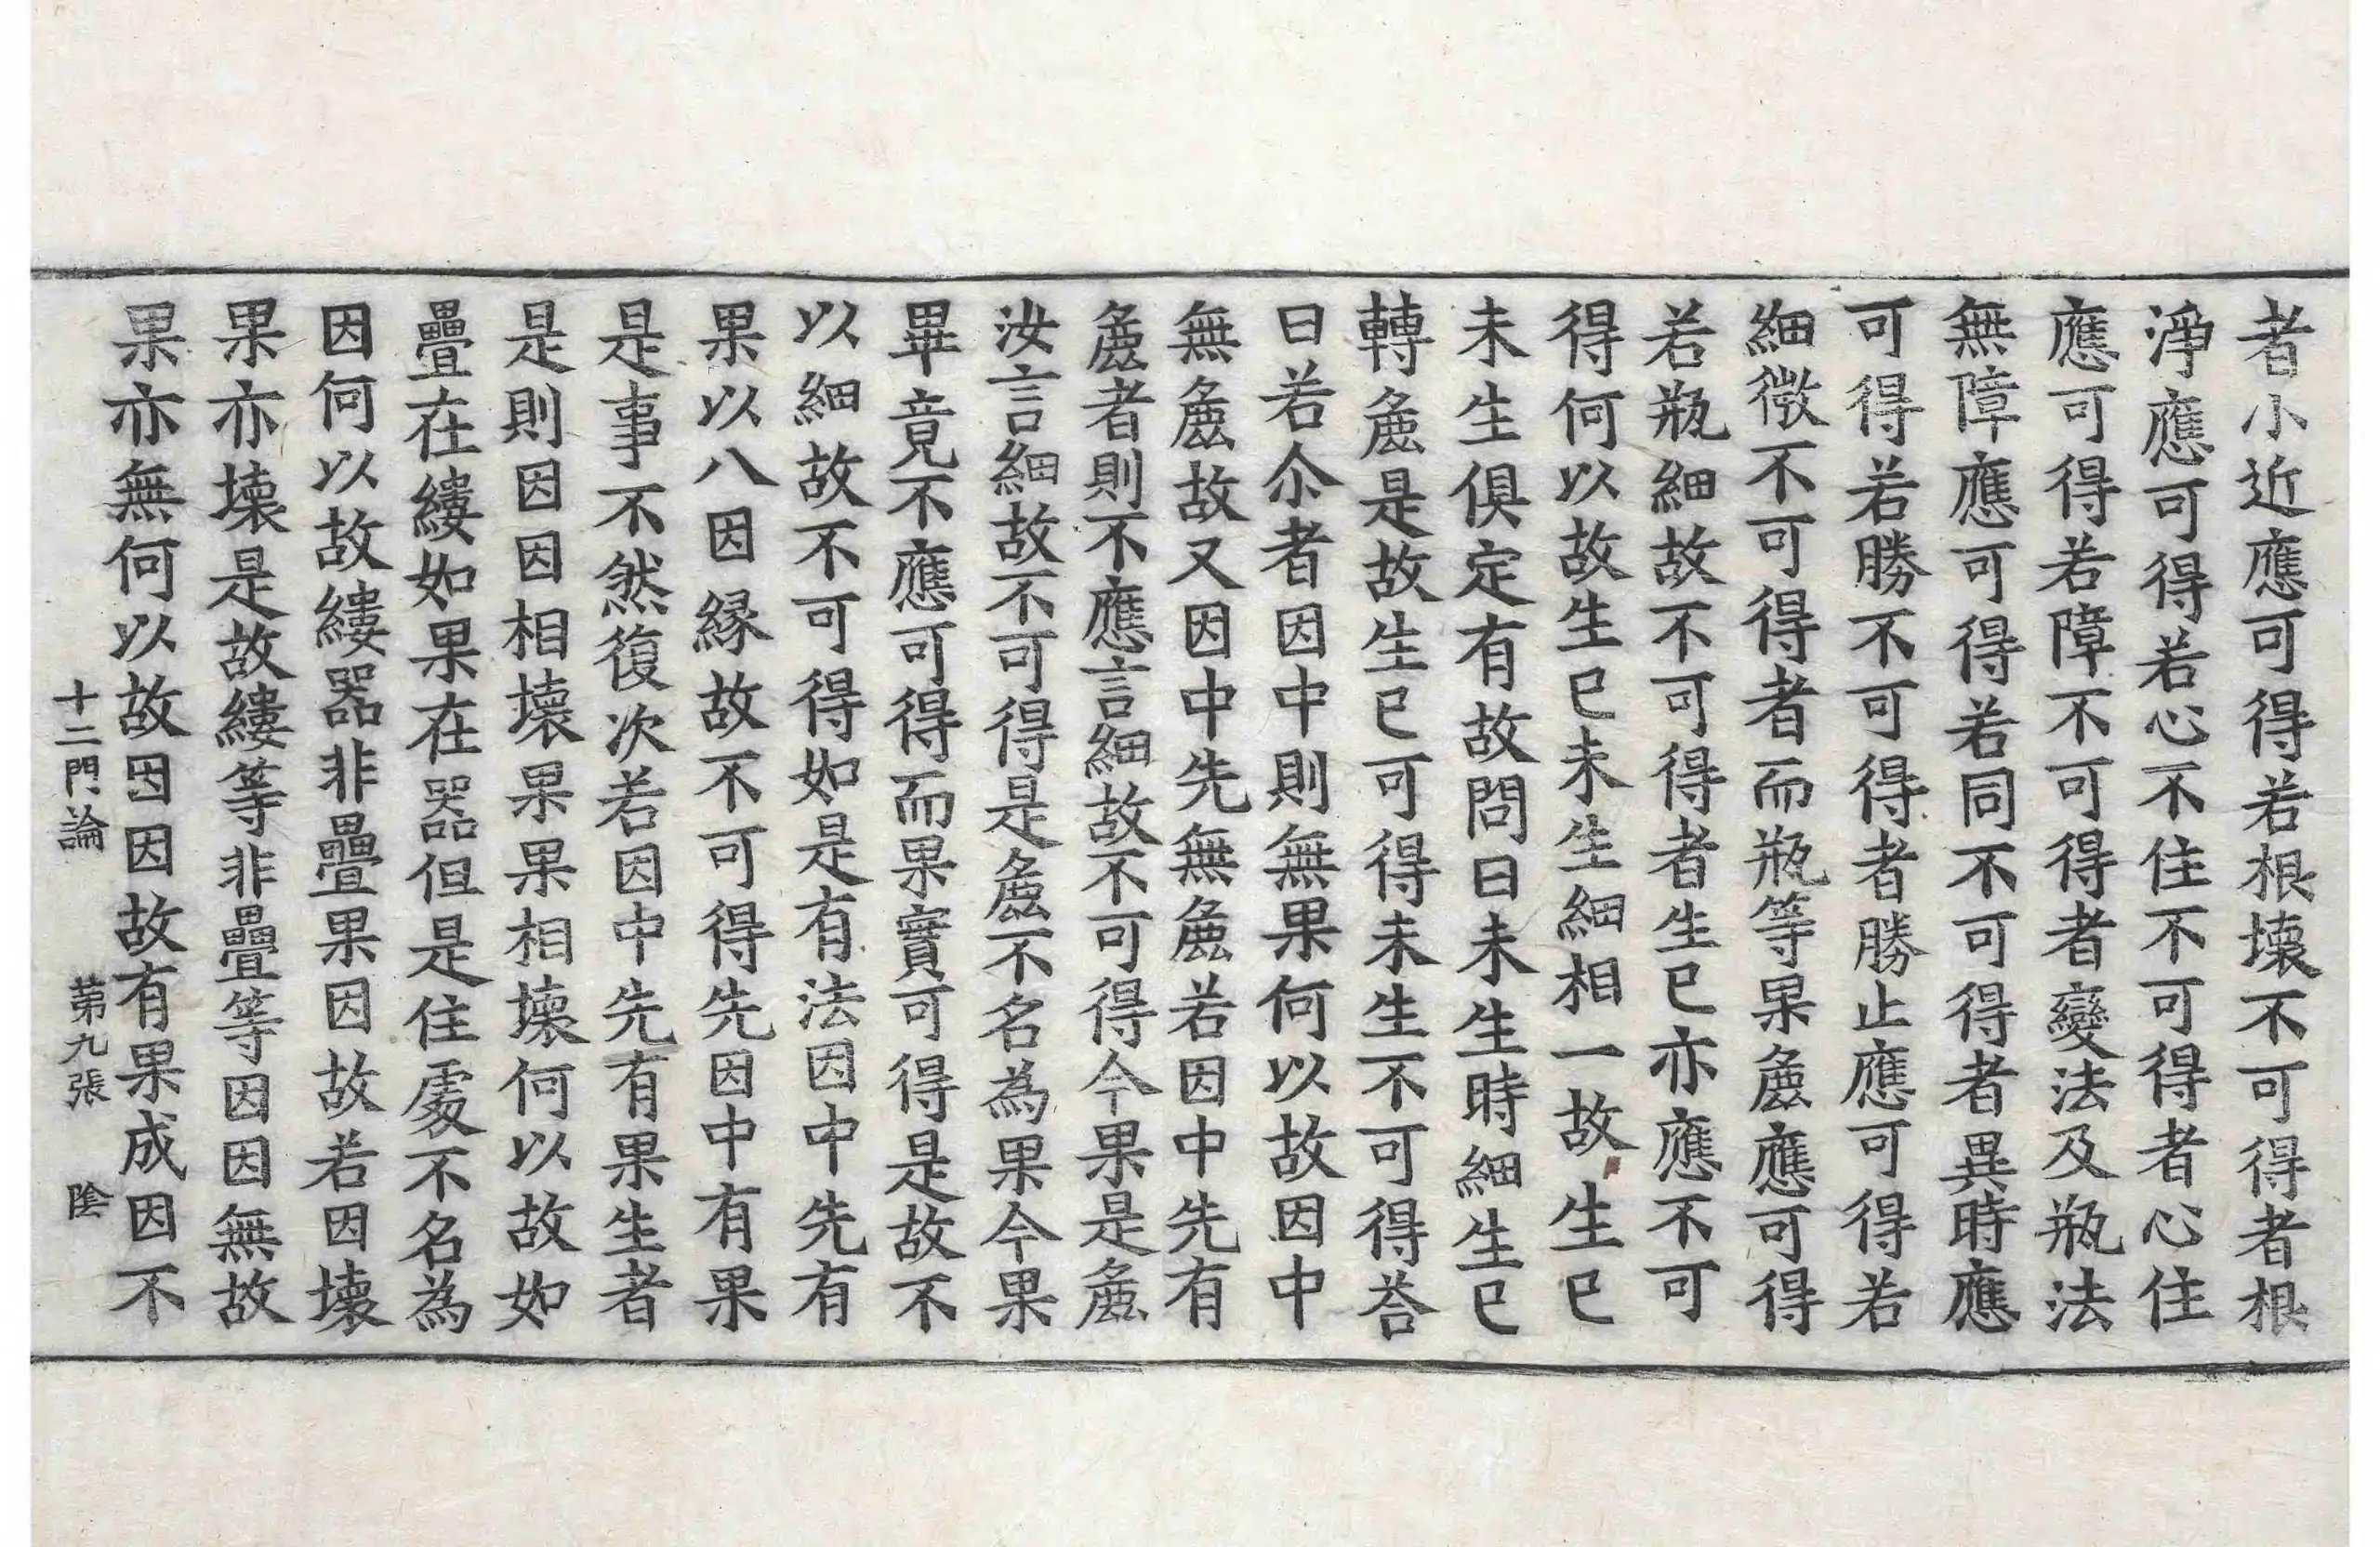 者小近應可得若根壞不可得者根
淨應可得若心不住不可得者心住
應可得若障不可得者變法及瓶法
無障應可得若同不可得者異時應
可得若勝不可得者勝止應可得若
細微不可得者而瓶等果麁應可得
若瓶細故不可得者生已亦應不可
得何以故生已未生細相一故生已
未生俱定有故問曰未生時細生已
轉麁是故生已可得未生不可得荅
曰若尒者因中則無果何以故因中
無麁故又因中先無麁若因中先有
麁者則不應言細故不可得今果是麁
汝言細故不可得是麁不名為果今果
畢竟不應可得而果實可得是故不
以細故不可得如是有法因中先有
果以八因緣故不可得先因中有果
是事不然復次若因中先有果生者
是則因因相壞果果相壞何以故如
疊在縷如果在器但是住處不名為
因何以故縷器非疊果因故若因壞
果亦壞是故縷等非疊等因因無故
果亦無何以故因因故有果成因不
十二門論 第九張 陰